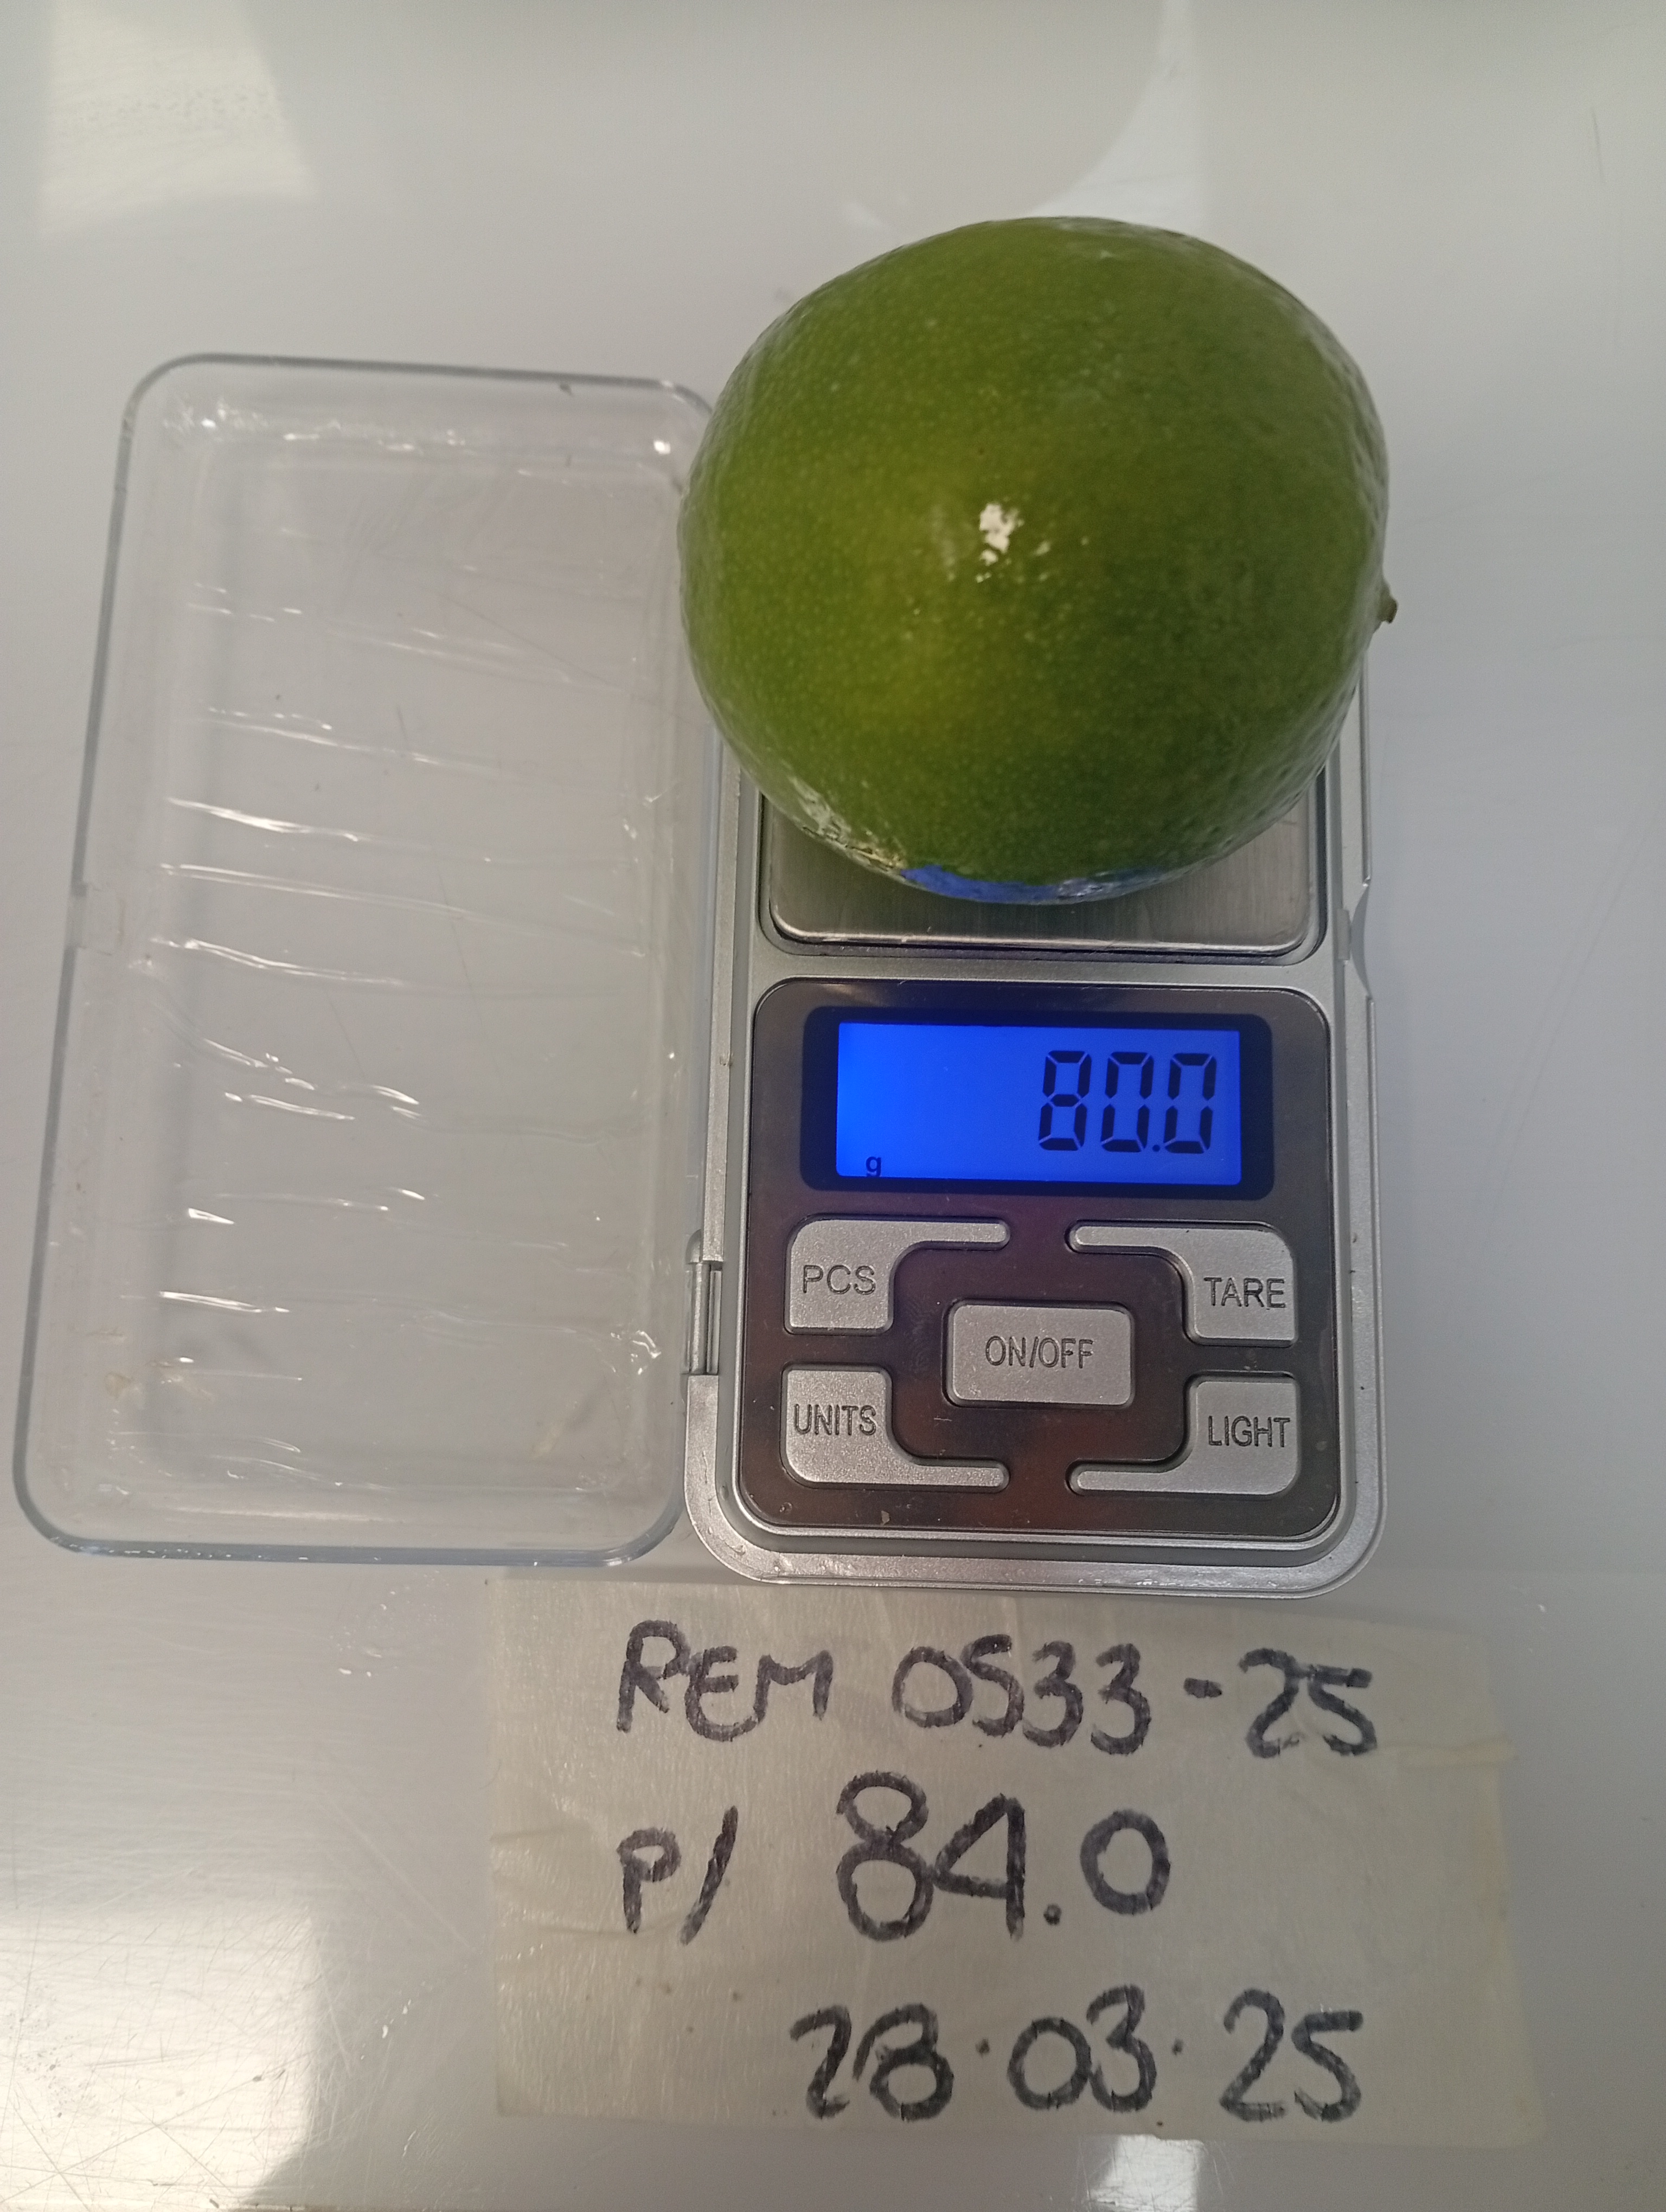 80.0
g
PCS
TARE
ON/OFF
UNITS
LIGHT
REM 0533-25
P/ 84.0
28.03.25